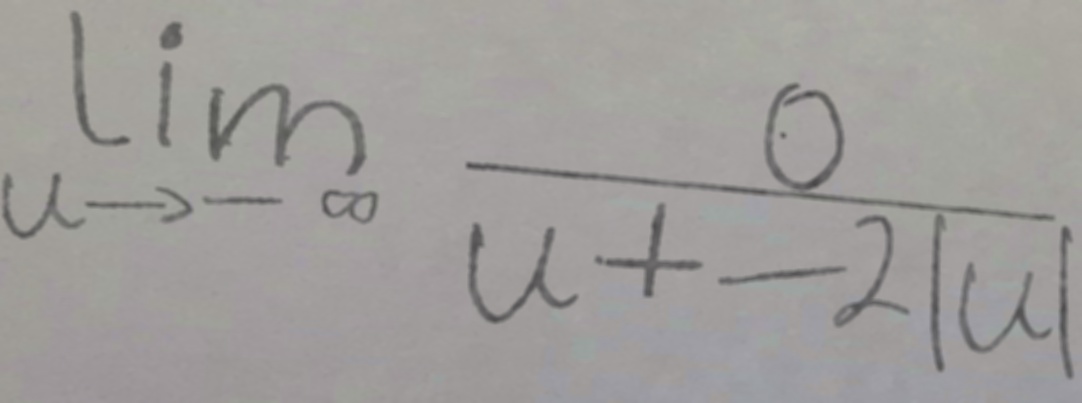 \lim_{u \to -\infty} \frac{0}{u + -2|u|}